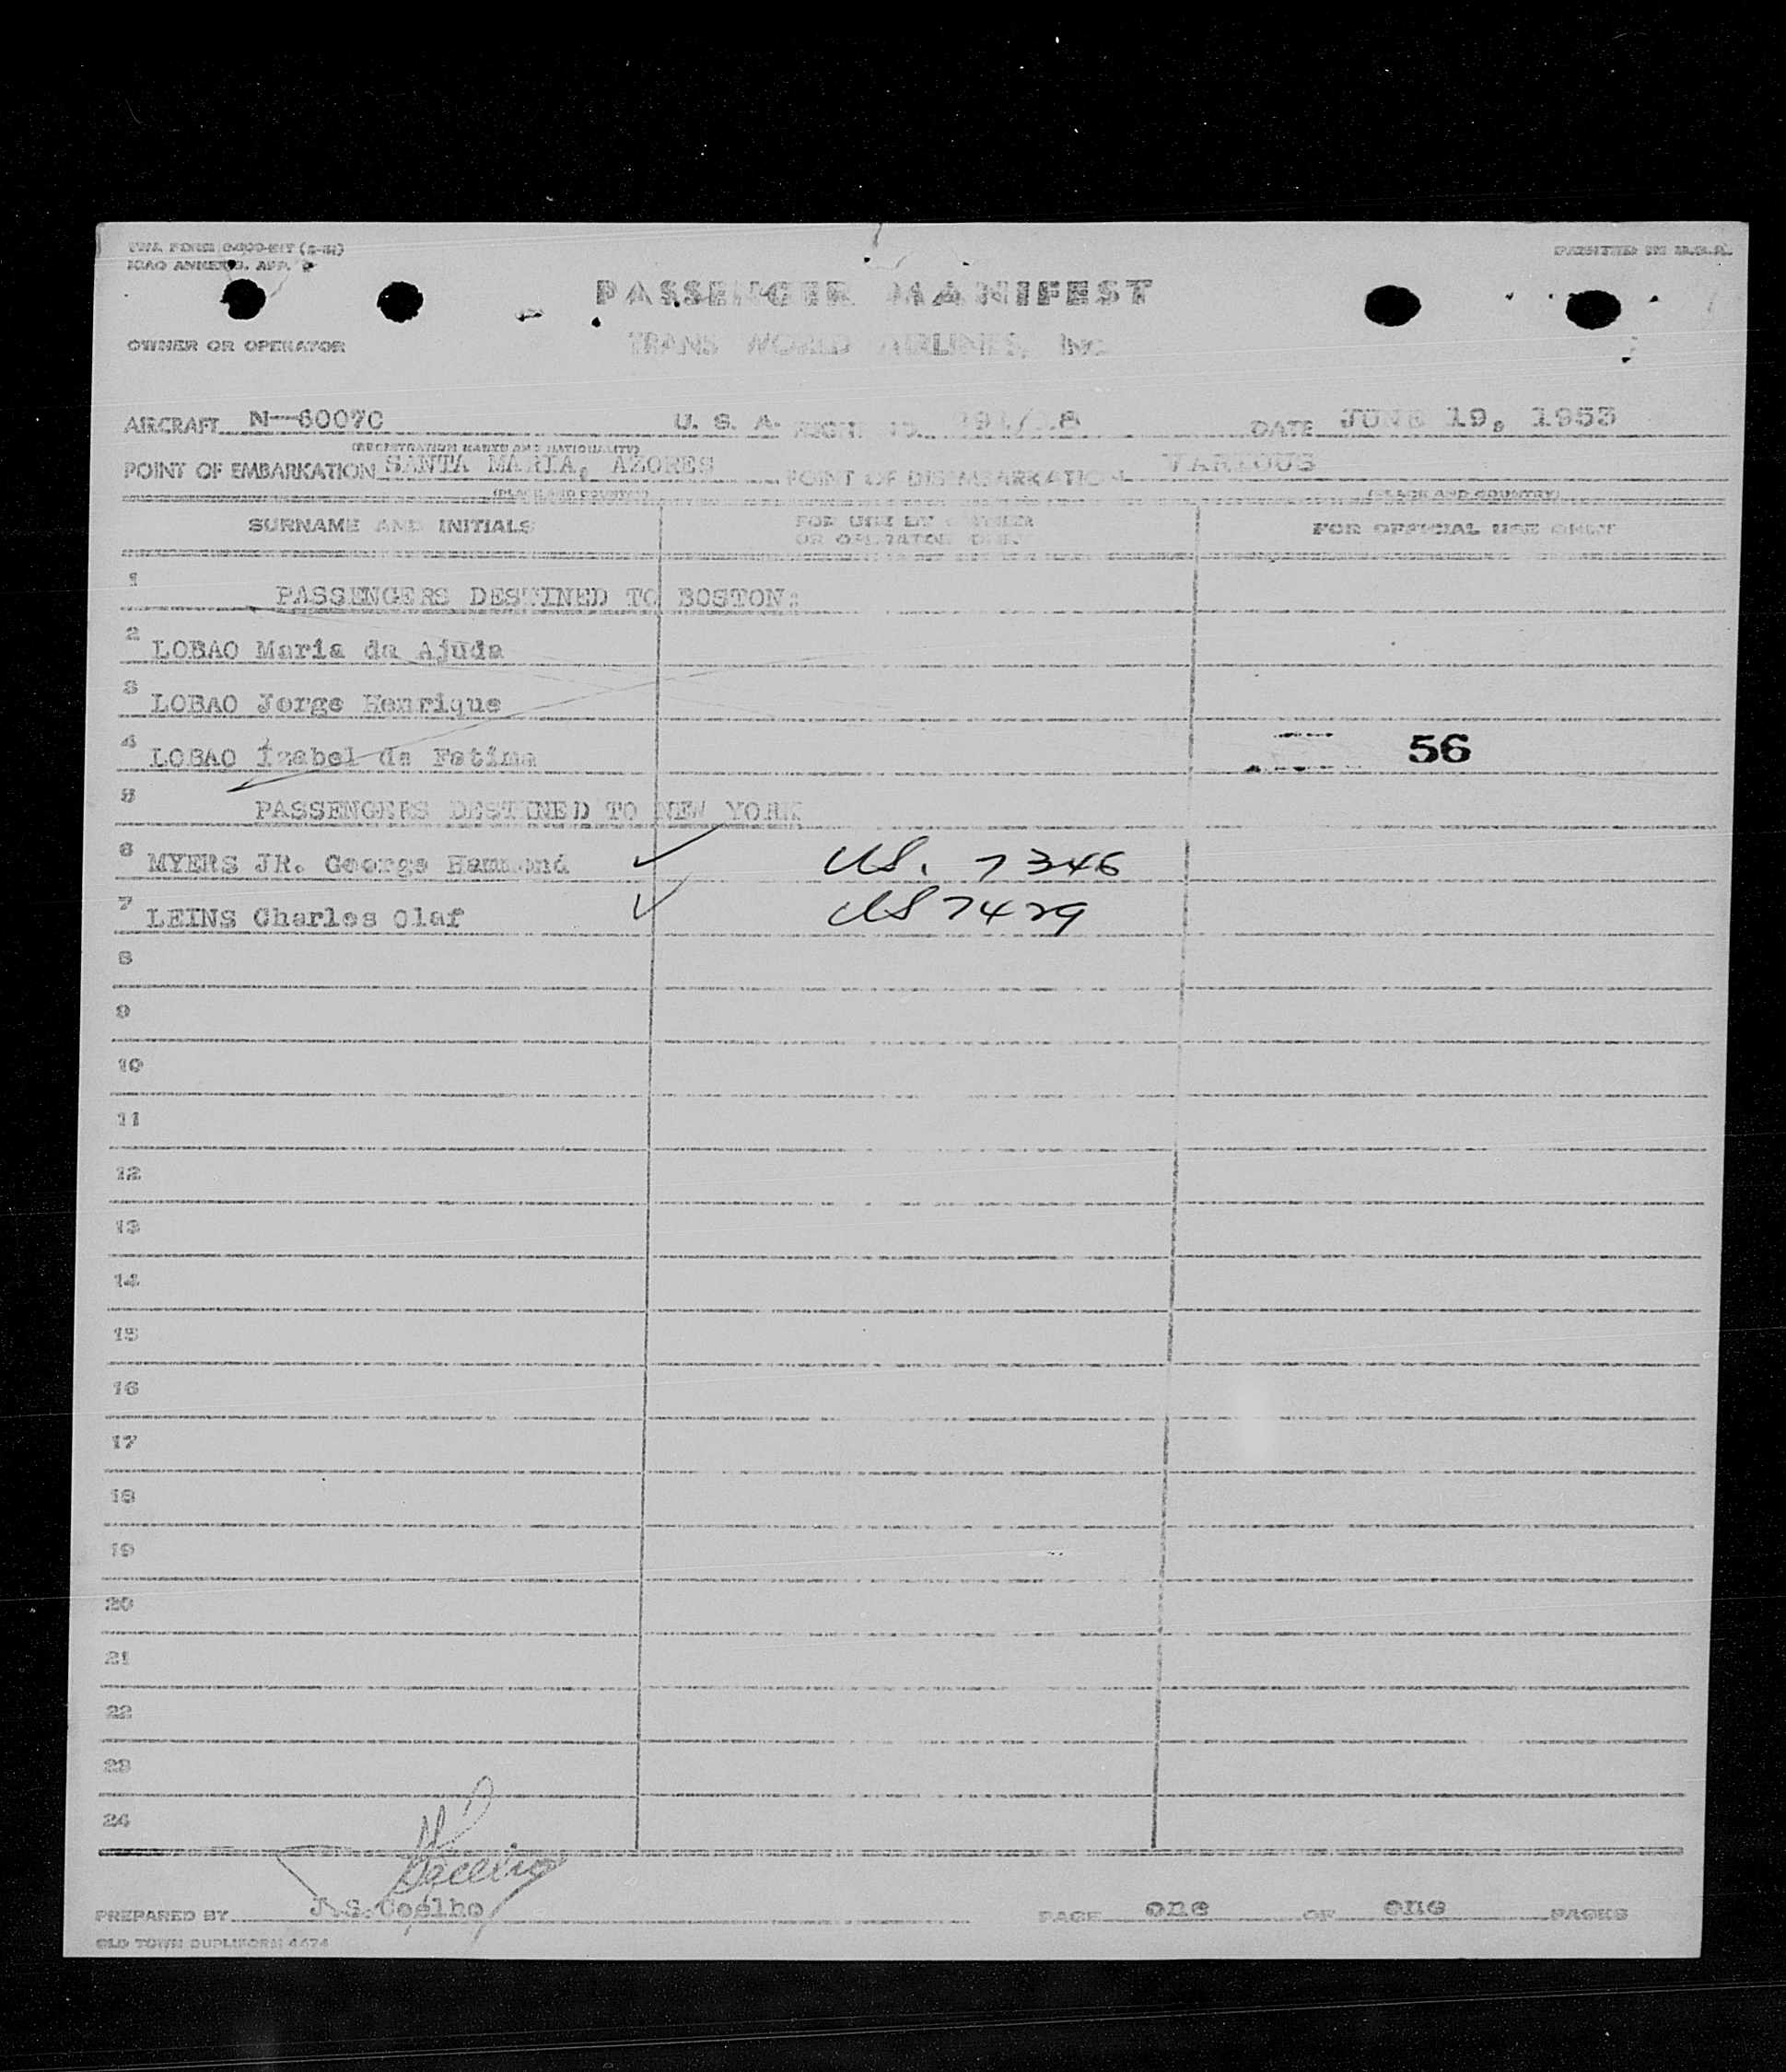 ICAO ANNEX 9, APP.
PRINTED IN U.S.A.
PASSENGER MANIFEST
OWNER OR OPERATOR
TRANS WORLD AIRLINES, INC.
AIRCRAFT N-6007C U. S. A. DATE JUNE 19, 1953
(REGISTRATION MARKS AND NATIONALITY)
POINT OF EMBARKATION SANTA MARIA, AZORES POINT OF DISEMBARKATION VARIOUS
(PLACE AND COUNTRY) (PLACE AND COUNTRY)
SURNAME AND INITIALS FOR USE BY OWNER OR OPERATOR ONLY FOR OFFICIAL USE ONLY
1 PASSENGERS DESTINED TO BOSTON:
2 LOBAO Maria da Ajuda
3 LOBAO Jorge Henrique
4 LOBAO Izabel de Fatima 56
5 PASSENGERS DESTINED TO NEW YORK
6 MYERS JR. George Hammond ✓ US. 7346
7 LEINS Charles Olaf ✓ US 7429
8
9
10
11
12
13
14
15
16
17
18
19
20
21
22
23
24
PREPARED BY J.S. Coelho PAGE one OF one PAGES
OLD TOWN DUPLIFORM 4674